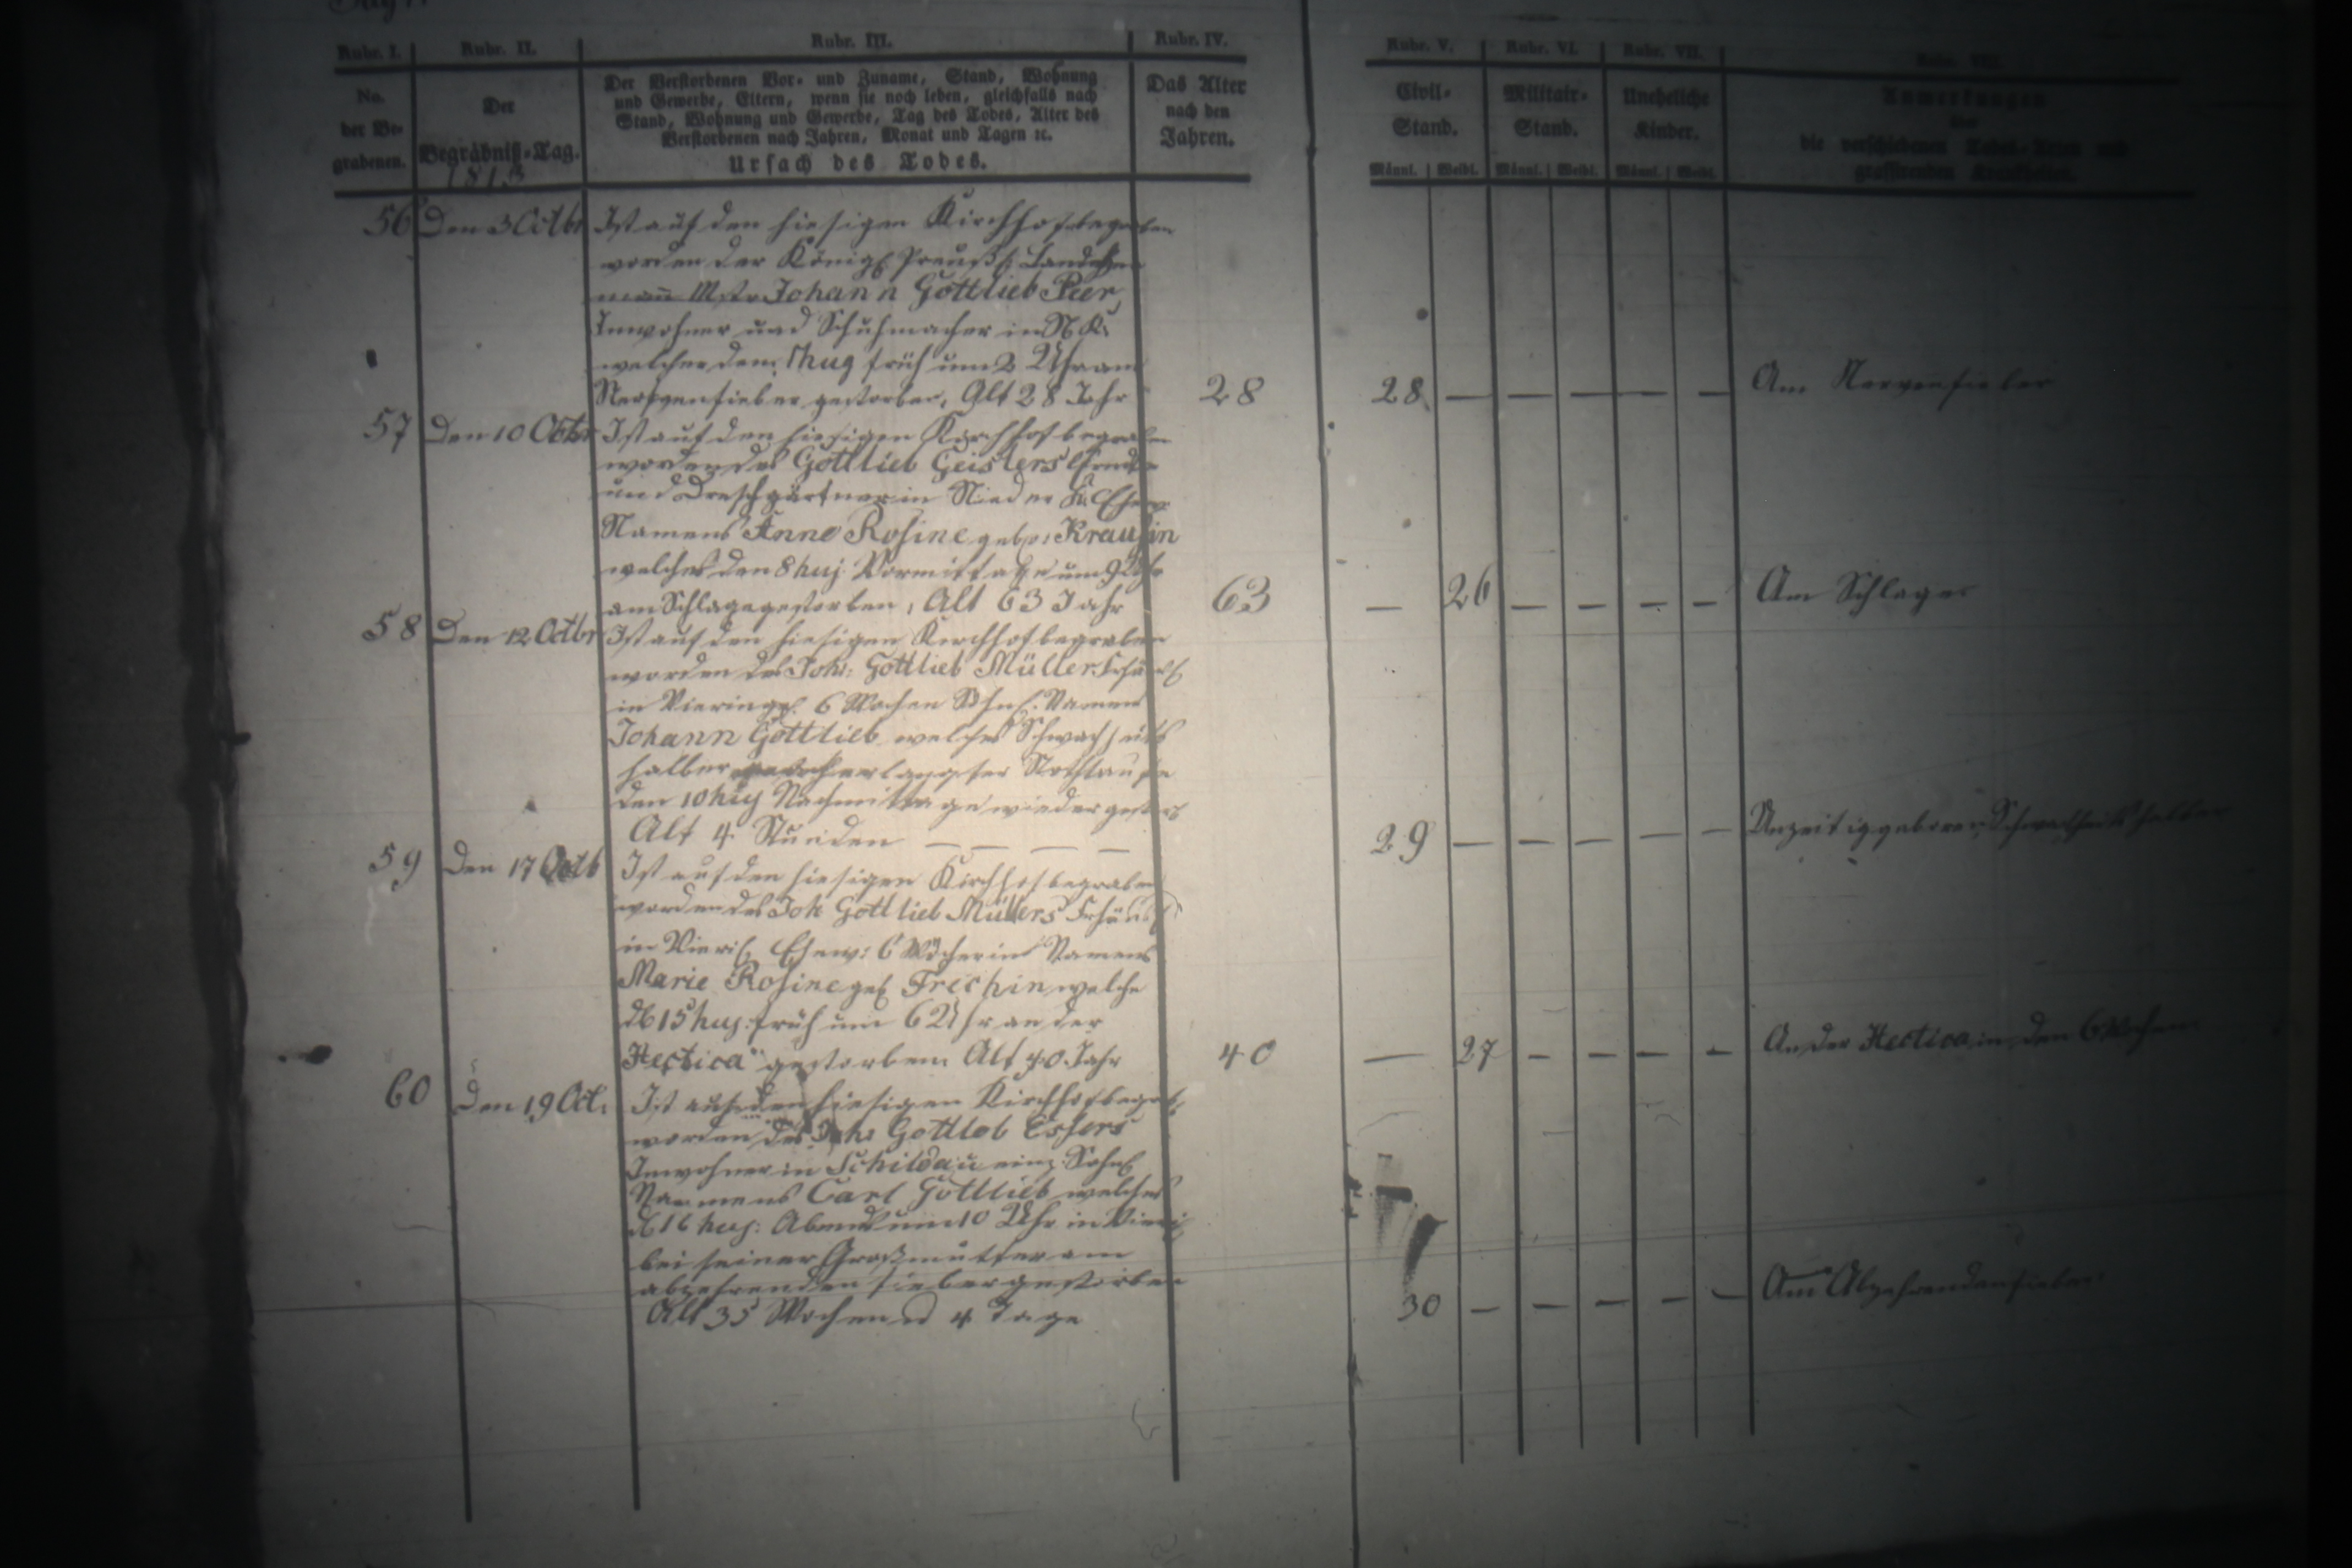 Rubr. I.
Rubr. II.
Rubr. III.
Rubr. IV.
Rubr. V.
Rubr. VI.
Rubr. VII.
Rubr. VIII.
No.
der Be-
grabenen.
Der
Begräbniß-Tag.
1813
Der Verstorbenen Vor- und Zuname, Stand, Wohnung
und Gewerbe, Eltern, wenn sie noch leben, gleichfalls nach
Stand, Wohnung und Gewerbe, Tag des Todes, Alter des
Verstorbenen nach Jahren, Monat und Tagen ꝛc.
Ursach des Todes.
Das Alter
nach den
Jahren.
Civil-
Stand.
Männl. Weibl.
Militair-
Stand.
Männl. Weibl.
Uneheliche
Kinder.
Männl. Weibl.
Anmerkungen
über
die verschiedenen Todes-Arten und
grassirenden Krankheiten.
56 Den 3 Octbr
Ist auf den hiesigen Kirchhof begraben
worden der Königl Preuß
Johann Gottlieb
Inwohner und Schuhmacher in N. K.
welcher den huj früh um 2 Uhr am
Nervenfieber gestorben, Alt 28 Jahr
28 28 — — — — — Am Nervenfieber
57 Den 10 Octbr
Ist auf den hiesigen Kirchhof begraben
worden des Gottlieb Geislers
und Dreschgärtner in Nieder K. Ehew
Namens Anne Rosine geb: Krausin
welche den 8 huj Vormittage um 9 Uhr
am Schlage gestorben, Alt 63 Jahr
63 — 26 — — — — Am Schlage
58 Den 12 Octbr
Ist auf den hiesigen Kirchhof begraben
worden des Joh: Gottlieb Müller
in 6 Wochen Söhnl. Namens
Johann Gottlieb welches Schwachheits
halber erlangter Nothtaufe
den 10 huj Nachmittage wieder gestorb
Alt 4 Stunden — — — —
29 — — — — — Unzeitig geboren Schwachheits halber
59 Den 17 Octb
Ist auf den hiesigen Kirchhof begraben
worden des Joh Gottlieb Müllers
in Ehew: 6 Wöcherin Namens
Marie Rosine geb Frechin welche
d 15 huj: früh um 6 Uhr an der
Hectica gestorben Alt 40 Jahr
40 — 27 — — — — An der Hectica in den 6 Wochen
60 Den 19 Oct:
Ist auf den hiesigen Kirchhof begrab
worden des Joh: Gottlob Essers
Inwohner in Schildau einz. Sohn
Nammens Carl Gottlieb welcher
d 16 huj: Abends um 10 Uhr in
bei seiner Großmutter am
abzehrenden fieber gestorben
Alt 35 Wochen u 4 Tage
30 — — — — — Am Abzehrenden fieber